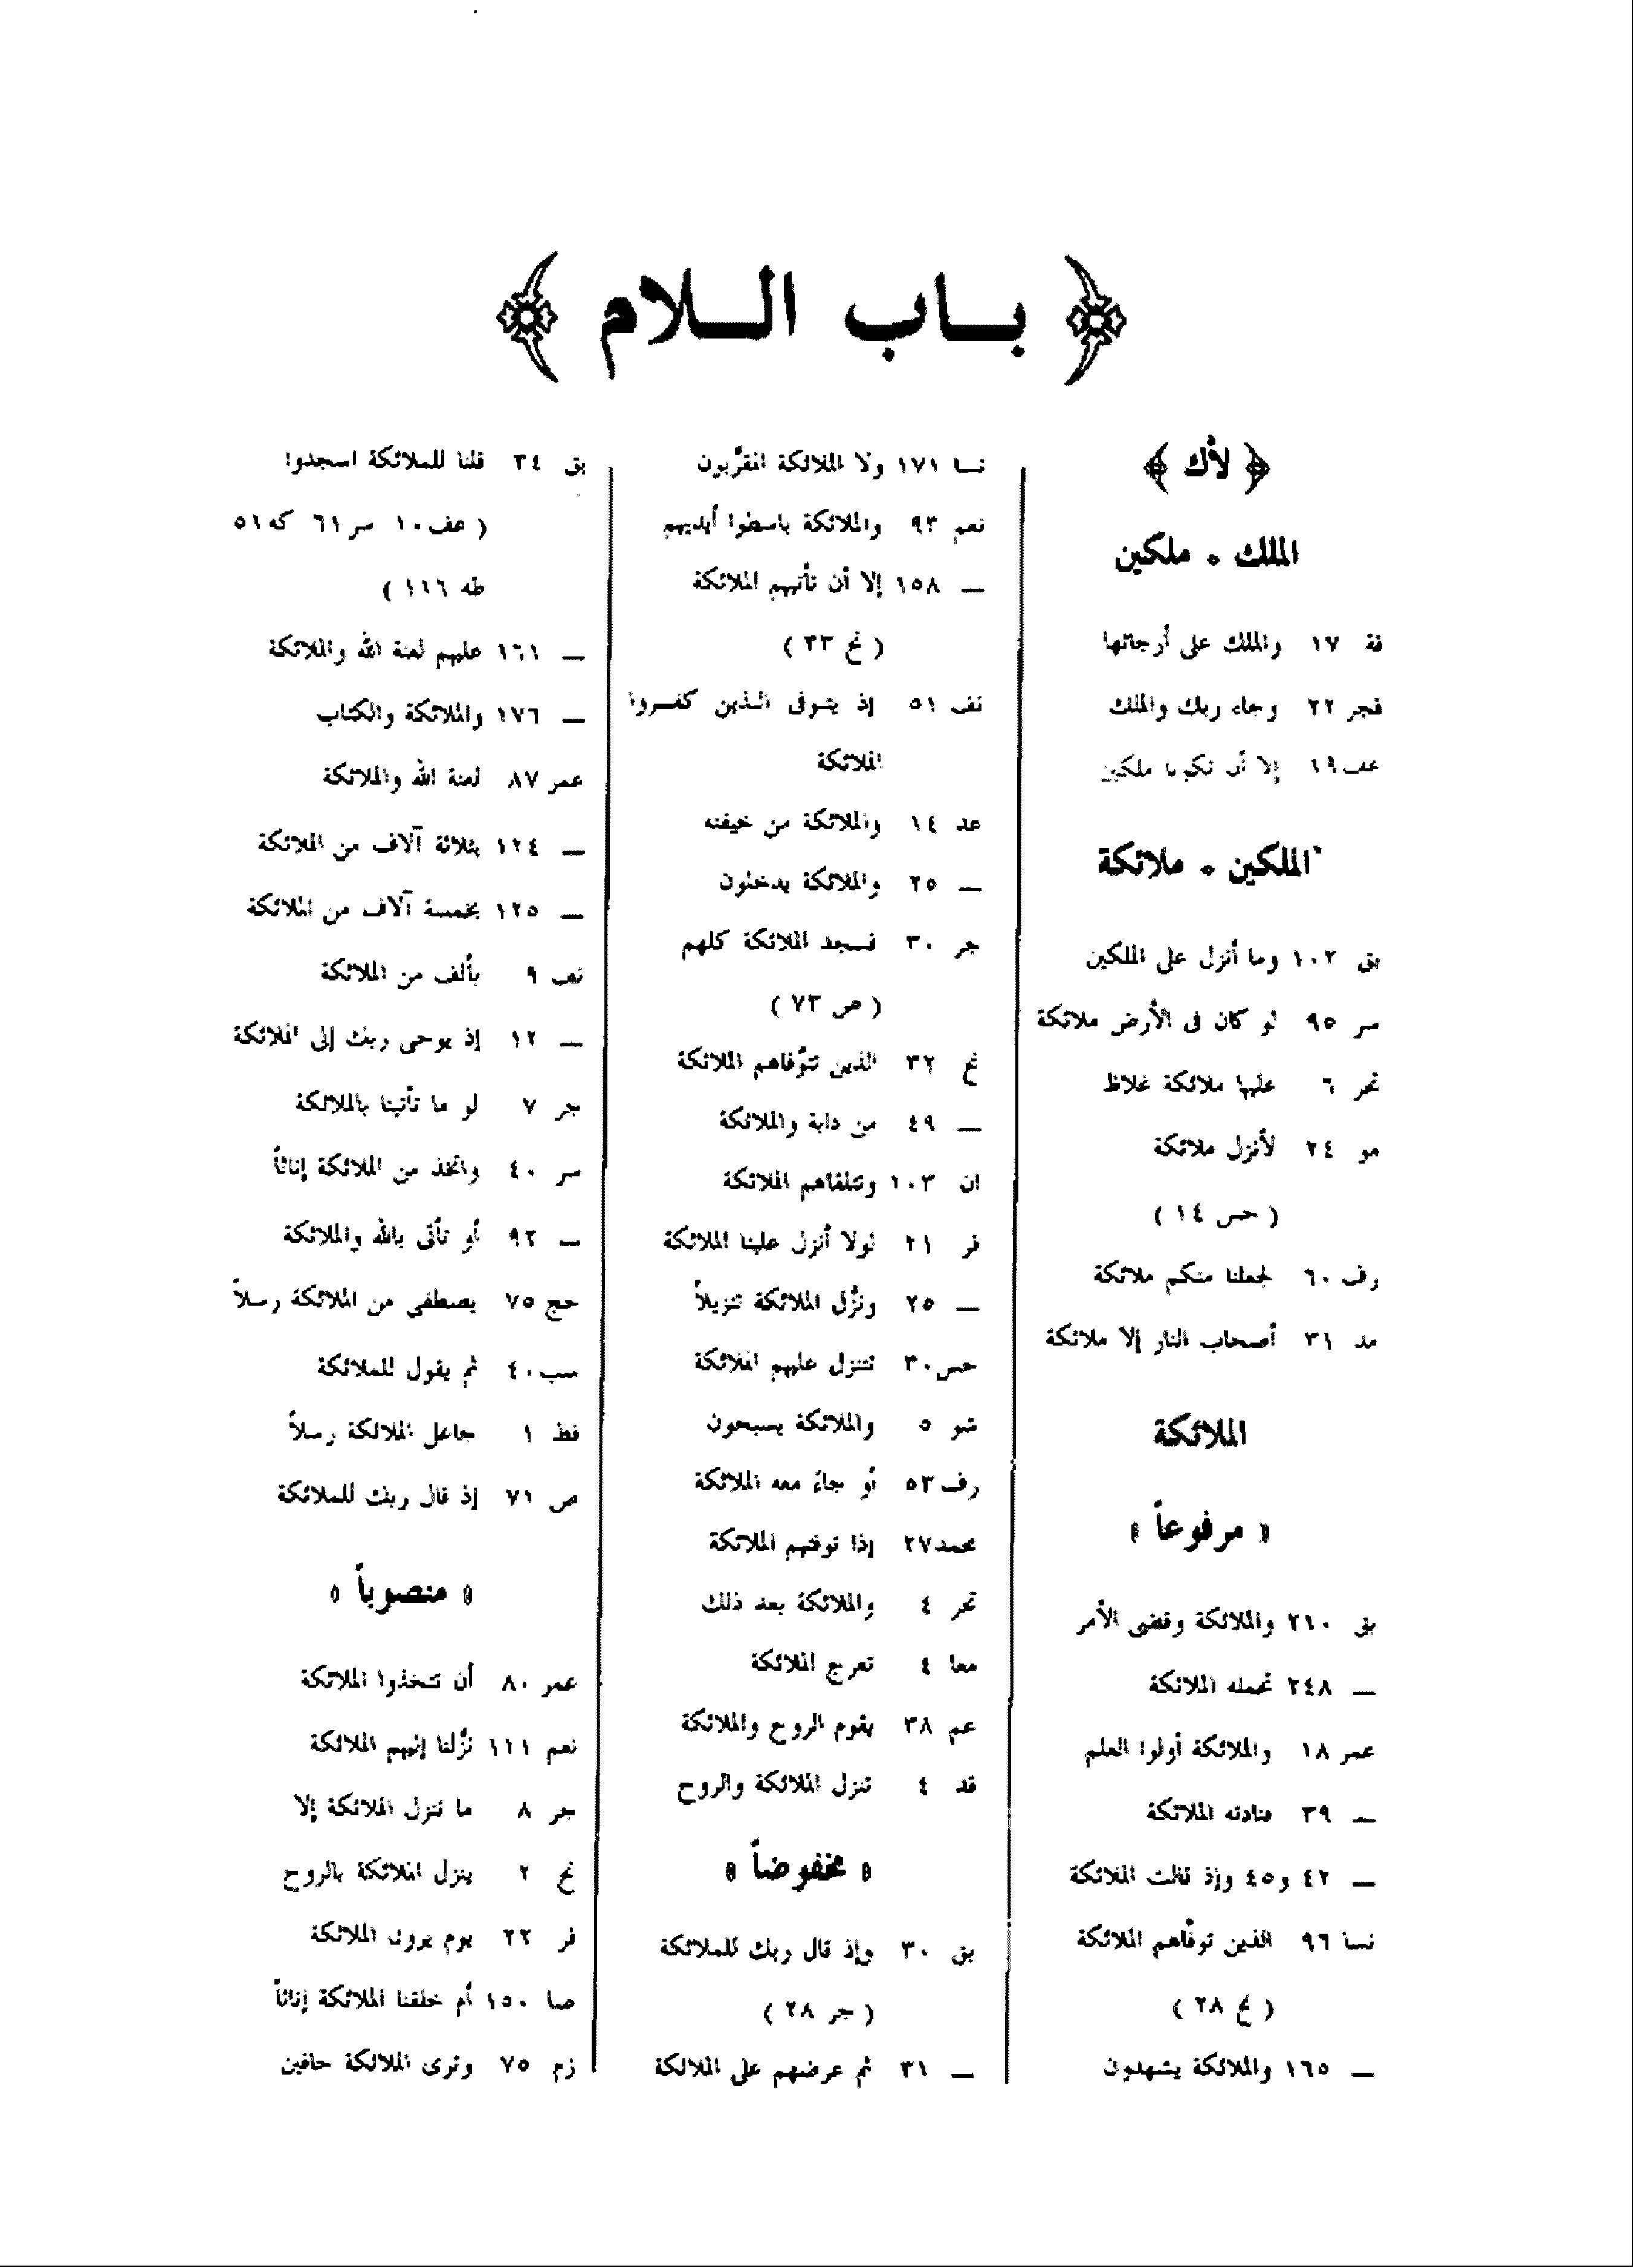 ﴿ بـاب الـلام ﴾
﴿ لأك ﴾
الملك ، ملكين
قة ١٧ والملك على أرجائها
فجر ٢٢ وجاء ربك والملك
عف ١٩ إلا أن تكونا ملكين
الملكين ، ملائكة
بق ١٠٢ وما أنزل على الملكين
سر ٩٥ لو كان فى الأرض ملائكة
تحر ٦ عليها ملائكة غلاظ
مو ٢٤ لأنزل ملائكة
( حس ١٤ )
رف ٦٠ لجعلنا منكم ملائكة
مد ٣١ أصحاب النار إلا ملائكة
الملائكة
« مرفوعاً »
بق ٢١٠ والملائكة وقضى الأمر
ــ ٢٤٨ تحمله الملائكة
عمر ١٨ والملائكة أولوا العلم
ــ ٣٩ فنادته الملائكة
ــ ٤٢ و٤٥ وإذ قالت الملائكة
نسا ٩٦ الذين توفّاهم الملائكة
( نح ٢٨ )
ــ ١٦٥ والملائكة يشهدون
نسا ١٧١ ولا الملائكة المقرّبون
نعم ٩٣ والملائكة باسطوا أيديهم
ــ ١٥٨ إلا أن تأتيهم الملائكة
( نح ٣٣ )
نف ٥١ إذ يتوفى الـذين كفـروا
الملائكة
عد ١٤ والملائكة من خيفته
ــ ٢٥ والملائكة يدخلون
جر ٣٠ فسجد الملائكة كلهم
( ص ٧٣ )
نح ٣٢ الذين تتوّفاهم الملائكة
ــ ٤٩ من دابة والملائكة
ان ١٠٣ وتتلقاهم الملائكة
فر ٢١ لولا أنزل علينا الملائكة
ــ ٢٥ ونزّل الملائكة تنزيلاً
حس ٣٠ تتنزل عليهم الملائكة
شو ٥ والملائكة يسبحون
رف ٥٣ أو جاءَ معه الملائكة
محمد ٢٧ إذا توفتهم الملائكة
تحر ٤ والملائكة بعد ذلك
معا ٤ تعرج الملائكة
عم ٣٨ يقوم الروح والملائكة
قد ٤ تنزل الملائكة والروح
« مخفوضاً »
بق ٣٠ وإذ قال ربك للملائكة
( جر ٢٨ )
ــ ٣١ ثم عرضهم على الملائكة
بق ٣٤ قلنا للملائكة اسجدوا
( عف ١٠ سر ٦١ كه ٥١
طه ١١٦ )
ــ ١٦١ عليهم لعنة الله والملائكة
ــ ١٧٦ والملائكة والكتاب
عمر ٨٧ لعنة الله والملائكة
ــ ١٢٤ بثلاثة آلاف من الملائكة
ــ ١٢٥ بخمسة آلاف من الملائكة
نف ٩ بألف من الملائكة
ــ ١٢ إذ يوحى ربك إلى الملائكة
جر ٧ لو ما تأتينا بالملائكة
سر ٤٠ واتخذ من الملائكة إناثاً
ــ ٩٢ أو تأتى بالله والملائكة
حج ٧٥ يصطفي من الملائكة رسلاً
سب ٤٠ ثم يقول للملائكة
فط ١ جاعل الملائكة رسلاً
ص ٧١ إذ قال ربك للملائكة
« منصوباً »
عمر ٨٠ أن تتخذوا الملائكة
نعم ١١١ نزّلنا إليهم الملائكة
جر ٨ ما ننزل الملائكة إلا
نح ٢ ينزل الملائكة بالروح
فر ٢٢ يوم يرون الملائكة
صا ١٥٠ أم خلقنا الملائكة إناثاً
زم ٧٥ وترى الملائكة حافين